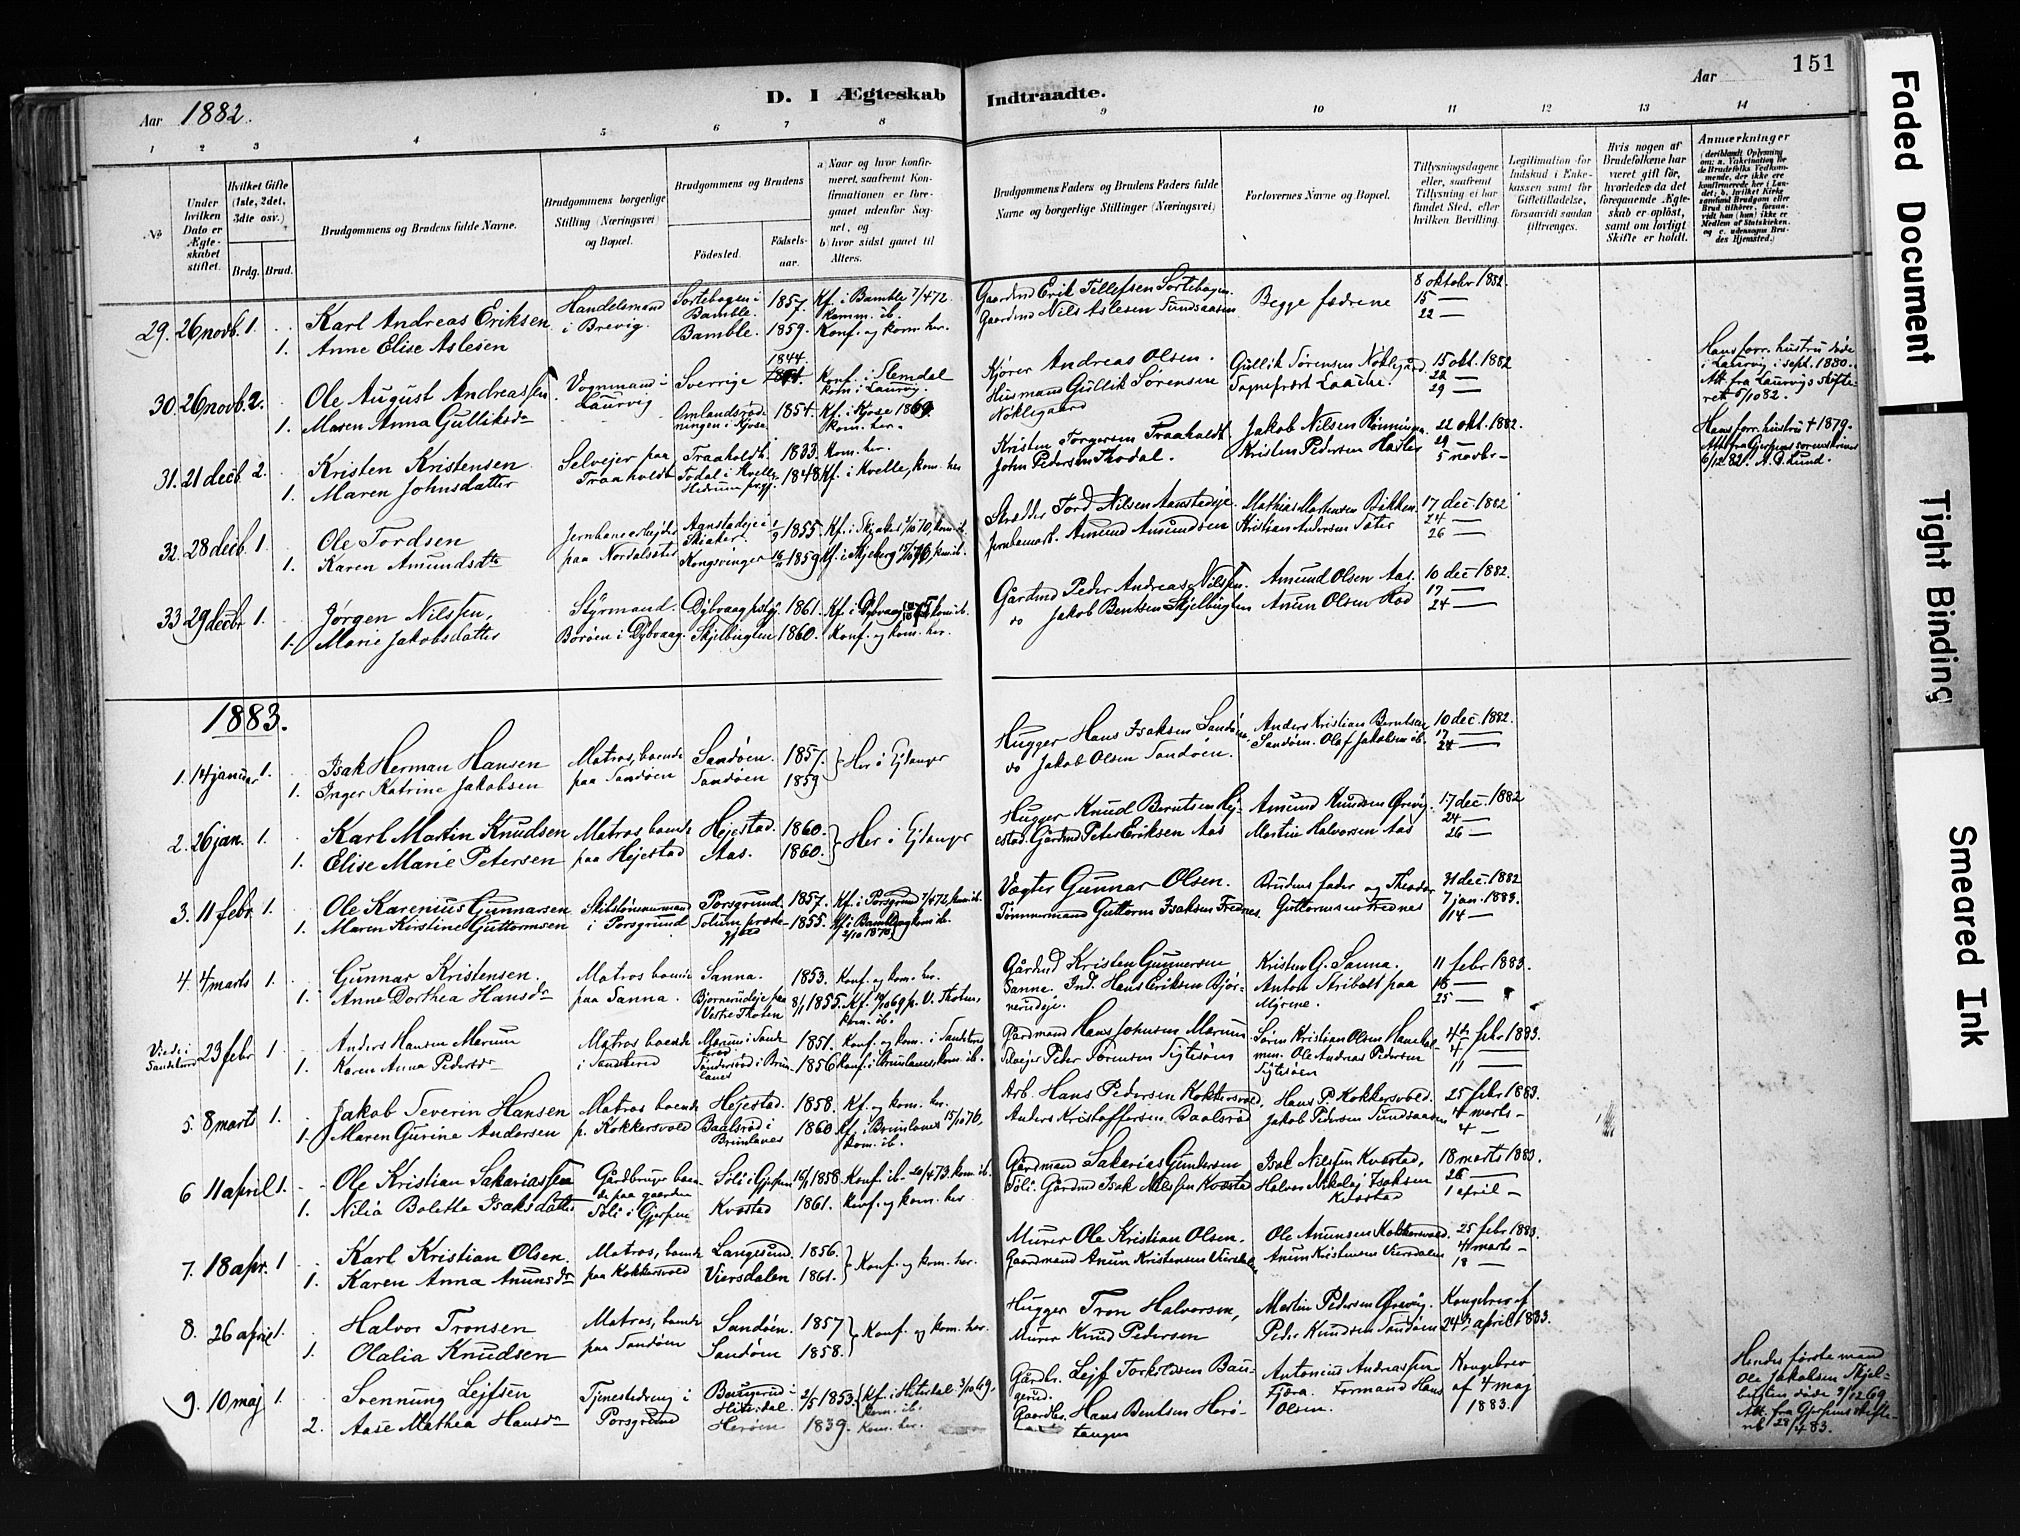 151
Aar 1882.
D. I Ægteskab Indtraadte.
Aar
1 2 3 4 5 6 7 8 9 10 11 12 13 14
No
Under hvilken Dato er Ægteskabet stiftet.
Hvilket Gifte (1ste, 2det, 3die osv.)
Brdg. Brud.
Brudgommens og Brudens fulde Navne.
Brudgommens borgerlige Stilling (Næringsvei) og Bopæl.
Brudgommens og Brudens
Fødested.
Fødselsaar.
a) Naar og hvor konfirmeret, saafremt Konfirmationen er foregaaet udenfor Sognet, og
b) hvor sidst gaaet til Alters.
Brudgommens Faders og Brudens Faders fulde Navne og borgerlige Stillinger (Næringsvei)
Forlovernes Navne og Bopæl.
Tillysningsdagene eller, saafremt Tillysning ei har fundet Sted, efter hvilken Bevilling.
Legitimation for Indskud i Enkekassen samt for Giftetilladelse, forsaavidt saadan tiltrænges.
Hvis nogen af Brudefolkene har været gift før, hvorledes da det foregaaende Ægteskab er opløst, samt om lovligt Skifte er holdt.
Anmærkninger
(deriblandt Oplysning om: a. Vakcination for de Brudefolks Vedkommende, der ikke ere konfirmerede her i Landet; b. hvilket Kirkesamfund Brudgom eller Brud tilhører, forsaavidt han (hun) ikke er Medlem af Statskirken, og c. udensogns Brudes Hjemsted.)
29. 26 novb. 1. Karl Andreas Eriksen Handelsmand i Brevig. Sortebogen i Bamble. 1857. Kf. i Bamble 7/4 72. kom. ib. Gaardmd Erik Tellefsen Sortebogen. Begge fædrene 8 oktobr 1882
1. Anne Elise Aslesen Bamble. 1859. Konf. og kom. her. Gaardmd Nils Aslesen Sundsaasen 15 — 22 —
30. 26 novb. 2. Ole August Andreassen Vognmand i Laurvig Sverrige 1844 Konf. i Slemdal kom. i Laurvig. Kjører Andreas Olsen. Gullik Sørensen Nøklegård 15 okt. 1882
1. Maren Anna Gulliksdr Omlandsrødningen i Kjose. 1854. Kf. i Kjose 1869. kom. her. Husmand Gullik Sørensen Nøklegaard 22 — 29 —
Hans forr. hustru døde i Laurvig i sept. 1880. Att. fra Laurvigs skifteret 5/10 82.
31. 21 decb 2. Kristen Kristensen Selvejer paa Traaholdt Traaholdt. 1833. Kom. her. Kristen Torgersen Traaholdt Jakob Nilsen Rønningen 22 okt. 1882.
1. Maren Johnsdatter Todal i Kvelle, Hedrum prgj. 1848 Kf. i Kvelle, kom. her John Pedersen Thodal. Kristen Pedersen 29 — 5 novbr —
Hans forr. hustru † 1879. Att. fra Gjerpens sorenskriver 6/12 82.
32. 28 decb. 1. Ole Tordsen paa Nordalseter Skiaker. 1855. Kf. i Skjaker kom. ib. Skrædder Tord Nilsen Mathias Mortensen Bakken 17 dec 1882
1. Karen Amundsdtr Kongsvinger 1859 Kf. i Skjeberg kom. ib. Amund Amundsen Kristian Andersen Sæter 24 — 26 —
33 29 decbr 1. Jørgen Nilssen, Styrmand Borøen i Dybvaag. Dybvaag 1861. Kf. i Dybvaag kom. ib. Gårdmd Peder Andreas Nilssen. Amund Olsen Aas. 10 dec 1882.
1. Marie Jakobsdatter Skjelbugten 1860. Konf. og kom. her. do Jakob Bentsen Skjelbugten Anun Olsen Rød 17 — 24 —
1883.
1. 14 januar 1. Isak Herman Hansen Matros, boende paa Sandøen Sandøen. 1857. Her i Ejdanger Hugger Hans Isaksen Sandøen. Anders Kristian Berntsen Sandøen. 10 dec. 1882.
1. Inger Katrine Jakobsen Sandøen 1859 do Jakob Olsen Sandøen. Olaf Jakobsen ib. 17 — 24 —
2. 26 jan. 1. Karl Martin Knudsen Matros boende paa Hejestad Hejestad. 1860. Her i Ejdanger Hugger Knud Berntsen Hejestad. Amund Knudsen Ørevig. 17 dec. 1882
1. Elise Marie Petersen Aas. 1860. Gårdmd Peter Eriksen Aas Martin Halvorsen Aas 24 — 26 —
3. 11 febr. 1. Ole Karenius Gunnarsen Skibstømmermand i Porsgrund Porsgrund. 1857. Kf. i Porsgrund 7/4 72, kom. ib. Vægter Gunnar Olsen. Brudens fader og Theodor Guttormsen Frednes 31 dec. 1882
1. Maren Kirstine Guttormsen Solum præstegjæld 1855. Kf. i Bamble 2/10 1870 og kom. ib. Tømmermand Guttorm Isaksen Frednes. 7 jan. 1883. 14 —
4. 4 marts 1. Gunnar Kristensen. Matros boende paa Sanna. Sanna. 1853. Konf. og kom. her. Gårdmd Kristen Gunnersen Sanne. Kristen G. Sanna. 11 febr 1883.
1. Anne Dorthea Hansdr Bjørnerudeje paa Vestre Thoten 8/1 1855. Kf. 10/10 69 p. V. Thoten, kom. ib. Ind. Hans Eriksen Bjørnerudeje. Anton Stribolt paa Myrene. 18 — 25 —
Viede i Sandehered 23 febr 1 Anders Hansen Marum Matros boende i Sandehered Marum i Sandehered 1851. Konf. og kom. i Sandehered Gårdmand Hans Johnsen Marum Søren Kristian Olsen 4de febr 1883.
1. Karen Anna Pedersdr Tøndersrød i Brunlanes 1856 Konf. i Brunlanes, kom. ib. Selvejer Peter Sørensen Sigtesøen Ole Andreas Pedersen Sigtesøen 4 — 11 —
5. 8 marts 1. Jakob Severin Hansen Matros boende p. Kokkersvold Hejestad. 1858. Kf. og kom. her. Arb. Hans Pedersen Kokkersvold, Hans P. Kokkersvold. 25 febr. 1883.
1. Maren Gurine Andersen Baalsrød i Brunlanes 1860 Kf. i Brunlanes 15/10 76, kom. ib. Anders Kristoffersen Baalsrød Jakob Pedersen Sundsaasen 4 marts — 4 —
6 11 april 1. Ole Kristian Sakariassen Gårdbruger boende paa gaarden Soli i Gjerpen Soli i Gjerpen 1858. Konf. ib. 20/4 73. kom. ib. Gårdmand Sakarias Gundersen Soli. Isak Nilssen Kvestad, 18 marts 1883.
1. Nilia Bolette Isaksdatter Kvestad 1861. Konf. og kom. her. Gårdmd Isak Nilssen Kvestad Halvor Nikolaj Isaksen Kvestad 26 — 1 april —
7. 18 apr. 1 Karl Kristian Olsen. Matros, boende paa Kokkersvold Langesund. 1856. Konf. og kom. her. Murer Ole Kristian Olsen. Ole Anunsen Kokkersvold. 25 febr 1883.
1. Karen Anna Anunsdr Viersdalen 1861. Gaardmand Anun Kristensen Viersdalen Anun Kristensen Viersdalen 4 marts — 18 —
8. 26 april 1. Halvor Tronsen Matros, boende paa Sandøen Sandøen. 1857 Konf. og kom. her. Hugger Tron Halvorsen, Martin Pedersen Ørevig. Kongebrev af 24de april 1883.
1. Olalia Knudsen Sandøen 1858. Murer Knud Pedersen Peder Knudsen Sandøen
9. 10 maj 1. Svennung Lejfsen Tjenestedreng i Porsgrund Baugerud i Hitterdal. 2/5 1853. Kf. i Hiterdal 3/10 69. kom. ib. Gårdbr. Lejf Torkildsen Baugerud. Antonius Andreassen Fjæra. Kongebrev af 4 maj 1883.
2. Aase Mathea Hansdr Herøen 1839. Kom. her. Gaardbr. Hans Bentsen Herøtangen Formand Hans Olsen.
Hendes første mand Ole Jakobsen Skjelbugten døde 9/12 69. Att. fra Gjerpens skifteret 28/4 83.
Faded Document
Tight Binding
Smeared Ink